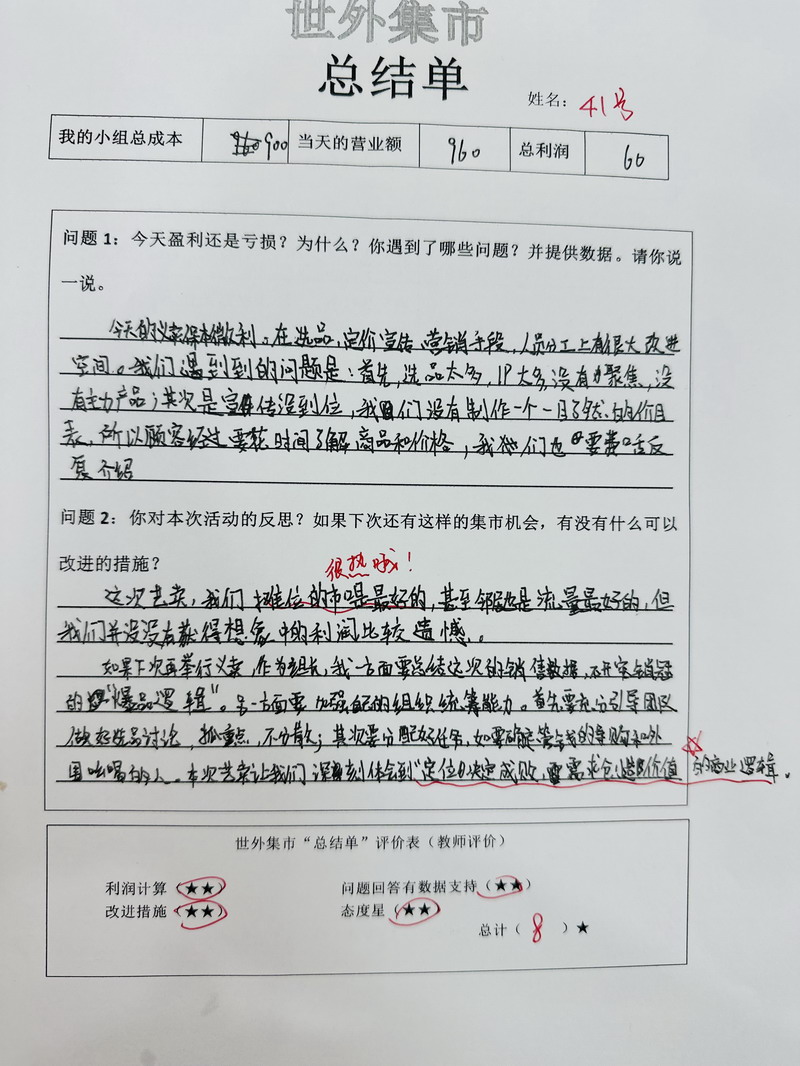 世外集市
总结单
姓名：41号
我的小组总成本 900 当天的营业额 960 总利润 60
问题 1：今天盈利还是亏损？为什么？你遇到了哪些问题？并提供数据。请你说
一说。
今天的义卖保本微利。在选品，定价宣传，营销手段，人员分工上有很大改进
空间。我们遇到到的问题是：首先，选品太多，IP太多，没有力聚焦，没
有主力产品；其次是宣传没到位，我们没有制作一个一目了然的价目
表，所以顾客经过要花时间了解商品和价格，我们也要费口舌反
复介绍
问题 2：你对本次活动的反思？如果下次还有这样的集市机会，有没有什么可以
改进的措施？
很热哦！
这次艺卖，我们摊位的市口是最好的，甚至邻边也是流量最好的，但
我们并没没有获得想象中的利润比较遗憾。
如果下次再举行义卖，作为组长，我一方面要总结这次的销售数据，
的"爆品逻辑"。另一方面要加强自己的组织统筹能力。首先要充分引导团队
做好选品讨论，抓重点，不分散；其次要分配好任务，如要确定管钱的
围吆喝的人。本次艺卖让我们深刻体会到"定位决定成败，需求创造价值 的商业逻辑。
世外集市“总结单”评价表（教师评价）
利润计算（★★） 问题回答有数据支持（★★）
改进措施（★★） 态度星（★★）
总计（ 8 ）★